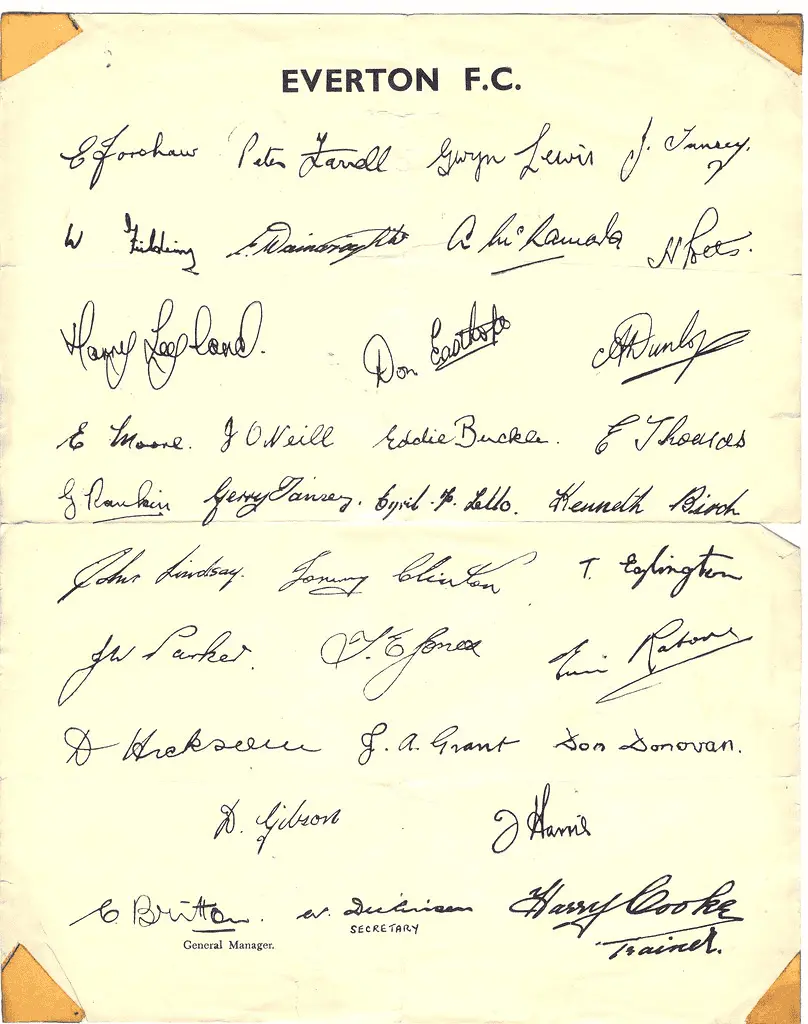 EVERTON F.C.
E Forshaw Peter Farrell Gwyn Lewis J. Tansey.
W Fielding E. Wainwright A McNamara H Potts.
Harry Leyland. Don Easthope A Dunlop
E Moore. J O'Neill Eddie Buckle. E Thomas
G Rankin Gerry Tansey. Cyril F. Lello. Kenneth Birch
John Lindsay. Tommy Clinton T. Eglington
JW Parker. T. E Jones Rabone
D Hickson J. A. Grant Don Donovan.
D. Gibson J Harris
C. Britton. W. Dickinson Harry Cooke
SECRETARY
General Manager. Trainer.